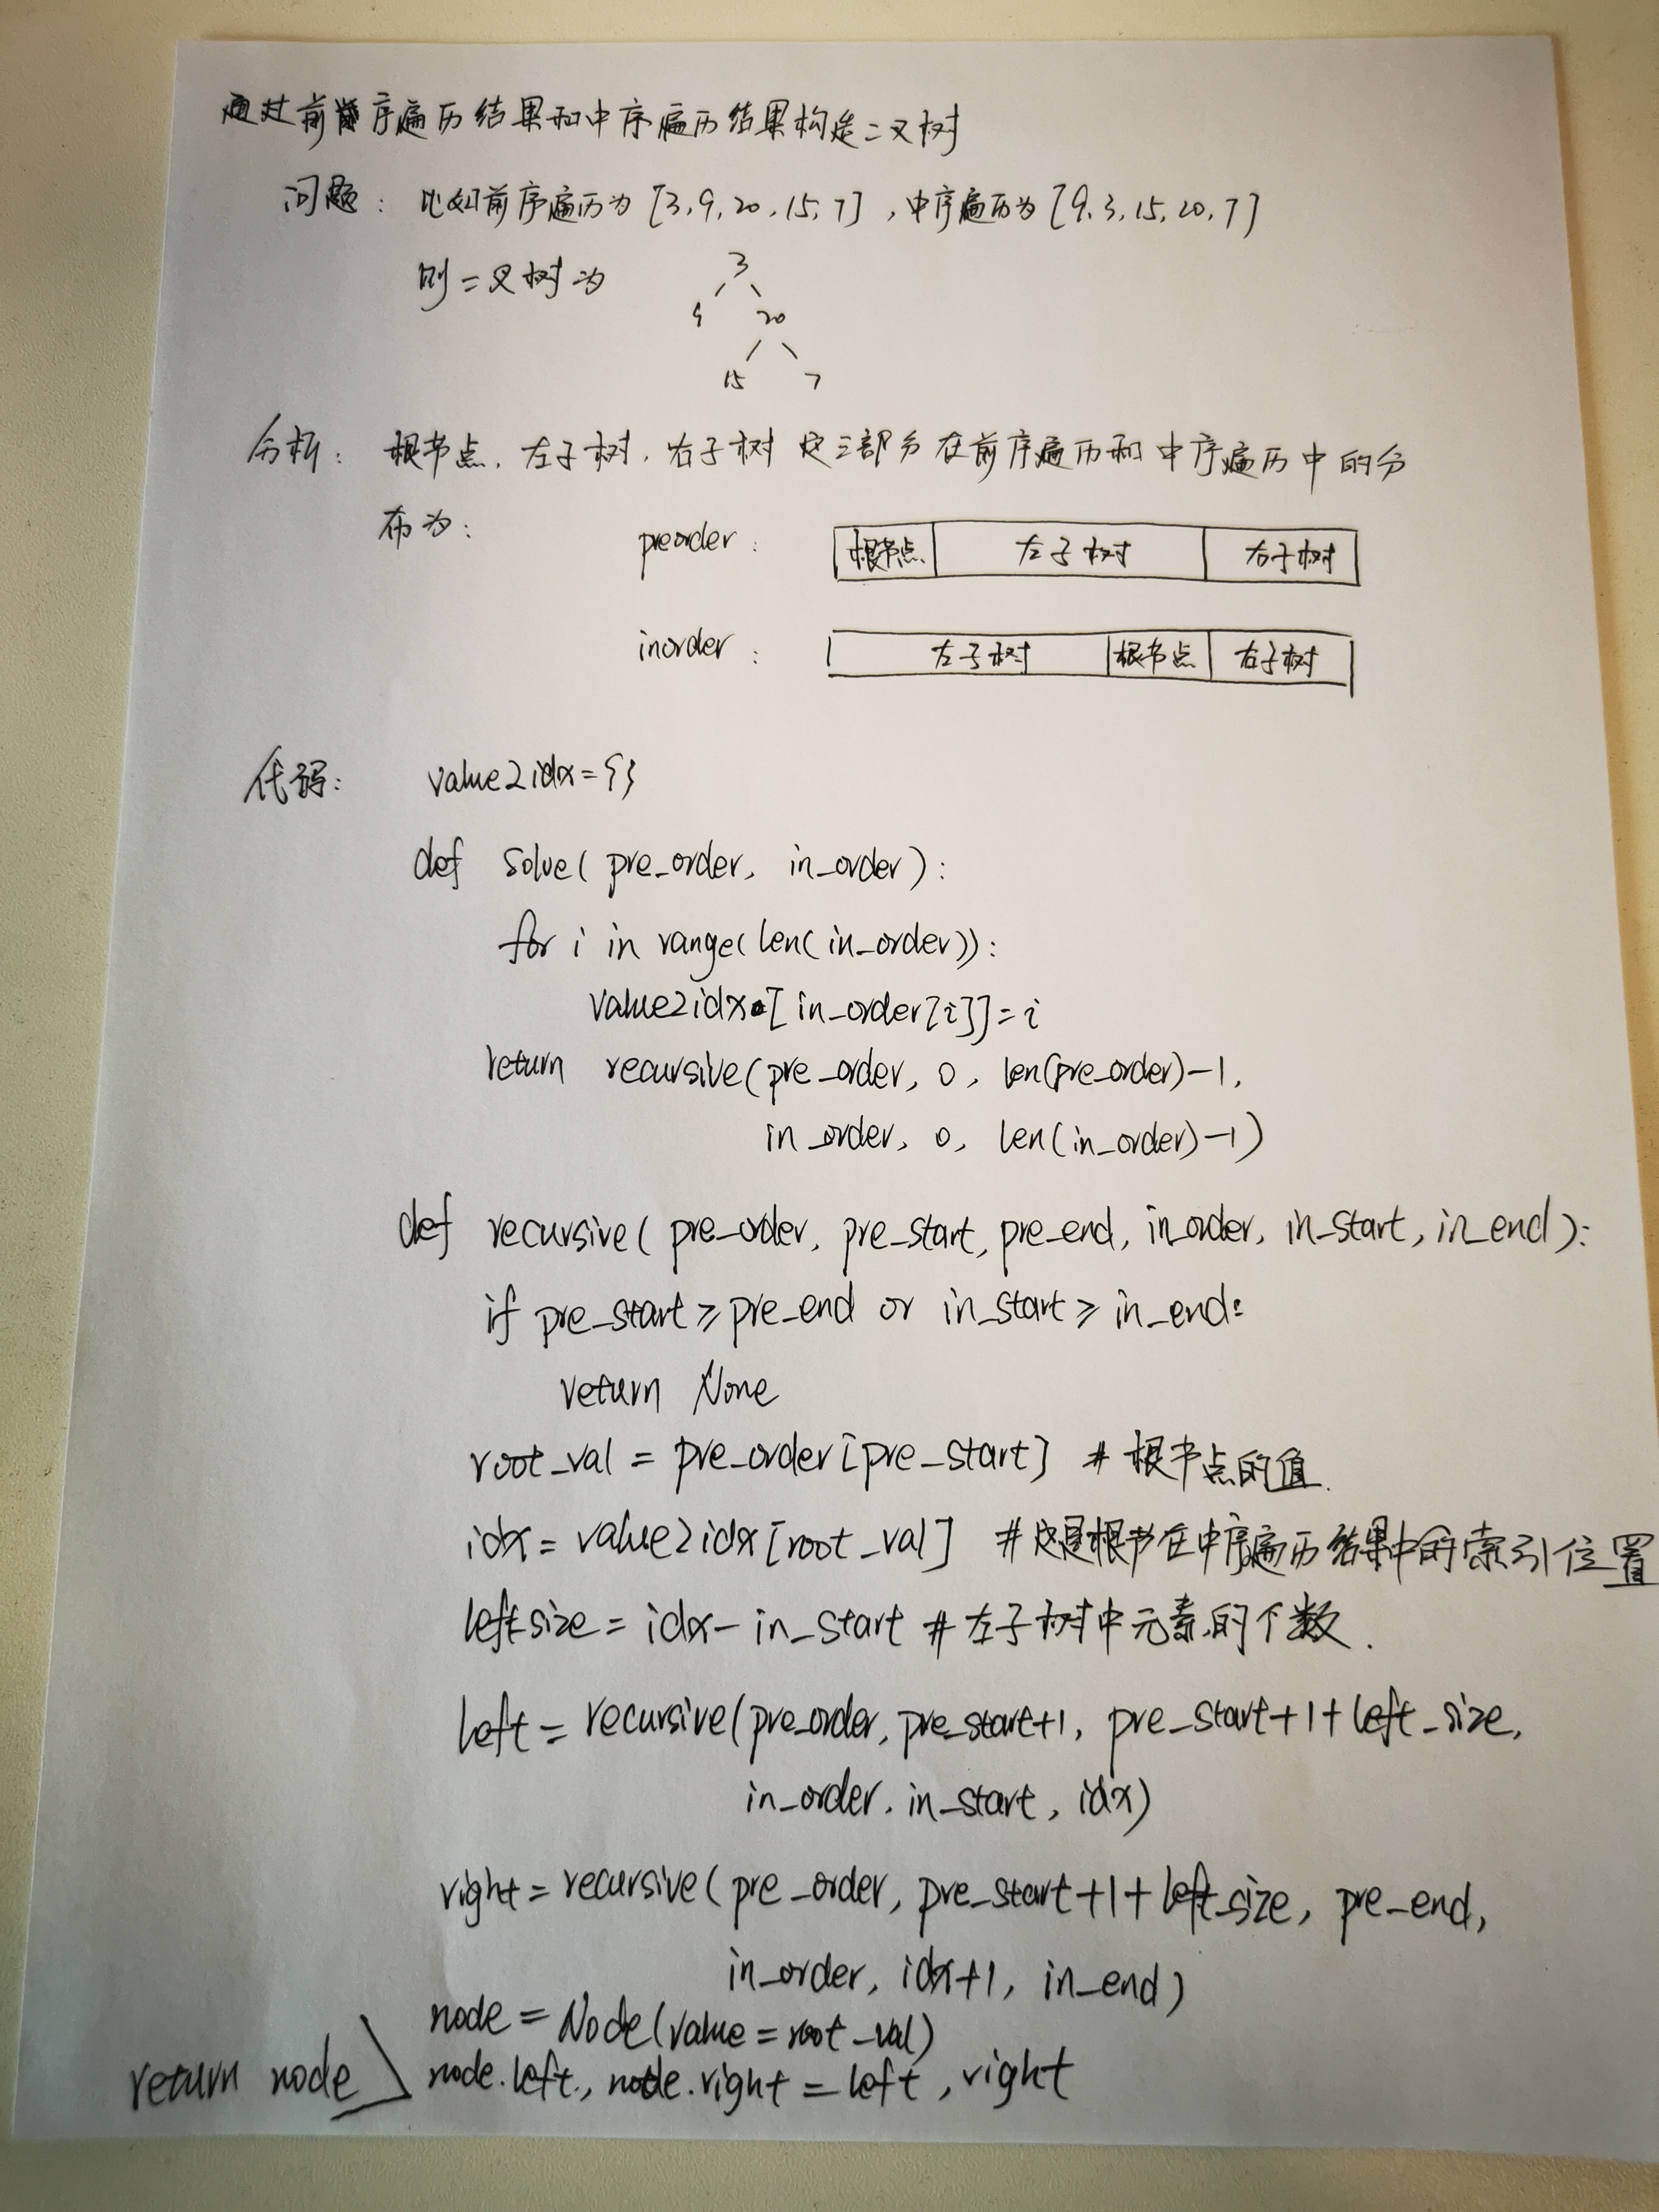 通过前序遍历结果和中序遍历结果构造二叉树
问题: 比如前序遍历为 [3,9,20,15,7],中序遍历为 [9,3,15,20,7]
则二叉树为
3
9 20
15 7
分析: 根节点、左子树、右子树 这三部分在前序遍历和中序遍历中的分
布为:
preorder: 根节点 左子树 右子树
inorder: 左子树 根节点 右子树
代码: value2idx={}
def solve( pre_order, in_order):
for i in range(len(in_order)):
value2idx[in_order[i]]=i
return recursive(pre_order, 0, len(pre_order)-1,
in_order, 0, len(in_order)-1)
def recursive( pre_order, pre_start, pre_end, in_order, in_start, in_end):
if pre_start ≥ pre_end or in_start ≥ in_end:
return None
root_val = pre_order[pre_start] # 根节点的值.
idx = value2idx[root_val] #这是根节在中序遍历结果中的索引位置
left size = idx - in_start # 左子树中元素的个数.
left = recursive(pre_order, pre_start+1, pre_start+1+left_size,
in_order, in_start, idx)
right = recursive( pre_order, pre_start+1+left_size, pre_end,
in_order, idx+1, in_end)
node = Node(value = root_val)
node.left, node.right = left, right
return node